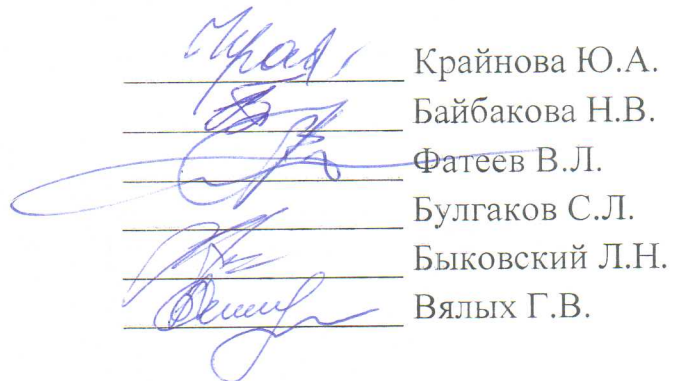 Крайнова Ю.А.
Байбакова Н.В.
Фатеев В.Л.
Булгаков С.Л.
Быковский Л.Н.
Вялых Г.В.